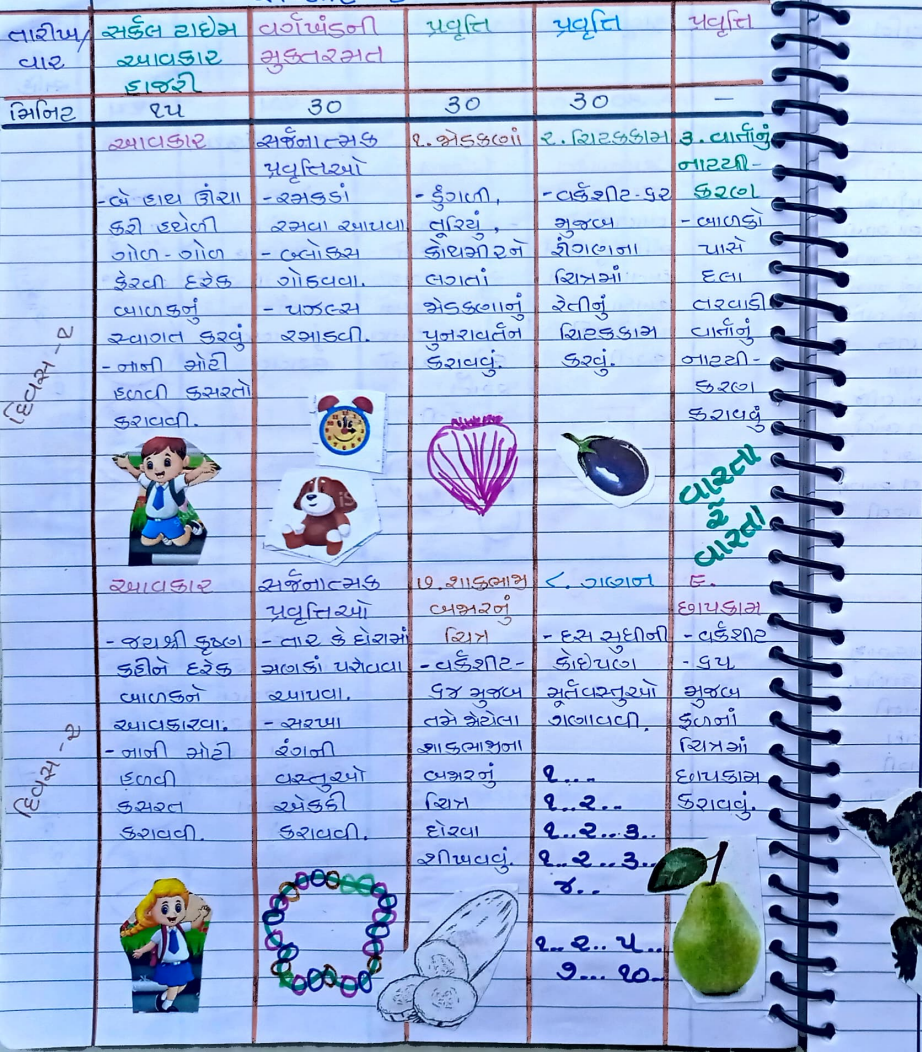 તારીખ/ વાર
સર્કલ ટાઇમ આવકાર હાજરી
વર્ગખંડની મુક્તરમત
પ્રવૃત્તિ
પ્રવૃત્તિ
પ્રવૃત્તિ
મિનિટ ૧૫ 30 30 30 -
દિવસ - ૧
આવકાર
- બે હાથ ઊંચા
કરી હથેળી
ગોળ-ગોળ
ફેરવી દરેક
બાળકનું
સ્વાગત કરવું
- નાની મોટી
હળવી કસરતો
કરાવવી.
સર્જનાત્મક
પ્રવૃત્તિઓ
- રમકડાં
રમવા આપવા
- બ્લોકસ
ગોઠવવા.
- પઝલ્સ
રમાડવી.
૧. જોડકણાં
- ડુંગળી,
તૂરિયું,
કોથમીરને
લગતાં
જોડકણાનું
પુનરાવર્તન
કરાવવું.
૨. ચિટકકામ
- વર્કશીટ-૬૨
મુજબ
રીંગણના
ચિત્રમાં
રેતીનું
ચિટકકામ
કરવું.
૩. વાર્તાનું
નાટયી-
કરણ
- બાળકો
પાસે
દલા
તરવાડી
વાર્તાનું
નાટયી-
કરણ
કરાવવું
વારતા
રે
વારતા
દિવસ - ૨
આવકાર
- જયશ્રી કૃષ્ણ
કહીને દરેક
બાળકને
આવકારવા.
- નાની મોટી
હળવી
કસરત
કરાવવી.
સર્જનાત્મક
પ્રવૃત્તિઓ
- તાર કે દોરામાં
મણકાં પરોવવા
આપવા.
- સરખા
રંગની
વસ્તુઓ
એકઠી
કરાવવી.
૭. શાકભાજી
બજારનું
ચિત્ર
- વર્કશીટ-
૬૪ મુજબ
તમે જોયેલા
શાકભાજીના
બજારનું
ચિત્ર
દોરવા
શીખવવું.
૮. ગણન
- દસ સુધીની
કોઈપણ
મૂર્તવસ્તુઓ
ગણાવવી.
૧...
૧..૨..
૧..૨...૩..
૧..૨...૩..
૪..
૧..૨..૫..
૭... ૧૦..
૯.
છાપકામ
- વર્કશીટ
- ૬૫
મુજબ
ફળનાં
ચિત્રમાં
છાપકામ
કરાવવું.